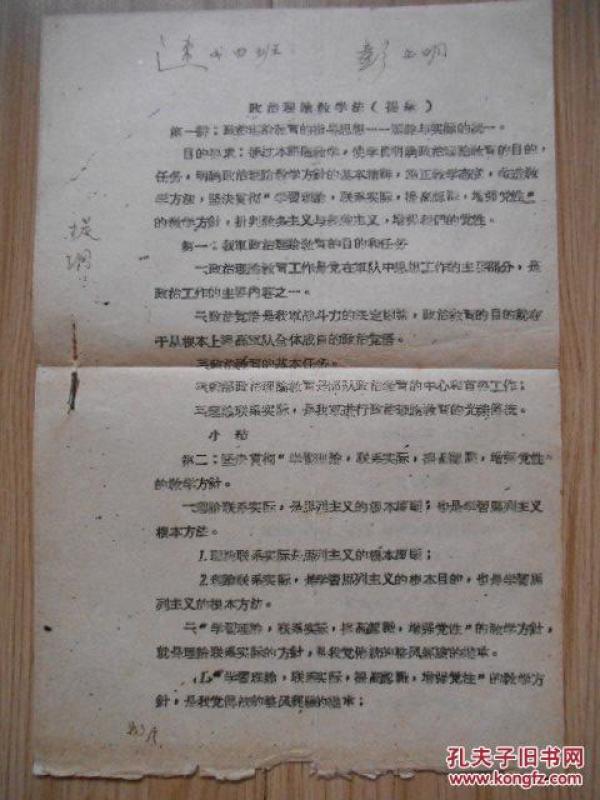 速成四班 彭
政治理论教学法(提纲)
第一讲:政治理论教育的指导思想——理论与实际的统一。
目的要求:通过本课教学,使学员明确政治理论教育的目的,
任务,明确政治理论教学方针的基本精神,端正教学态度,改进教
学方法,坚决贯彻“学习理论,联系实际,提高认识,增强党性”
的教学方针,批判教条主义与经验主义,增强我们的党性。
第一:我军政治理论教育的目的和任务
一、政治理论教育工作是党在军队中思想工作的主要部分,是
政治工作的主要内容之一。
二、政治觉悟是我军战斗力的决定因素,政治教育的目的就在
于从根本上提高军队全体成员的政治觉悟。
三、政治教育的基本任务。
政治理论教育是部队政治教育的中心和首要工作;
理论联系实际,是我军进行政治理论教育的
小结
第二:坚决贯彻“学习理论,联系实际,提高认识,增强党性”
的教学方针。
一、理论联系实际,是马列主义的根本原则;也是学习马列主义
根本方法。
1.理论联系实际是马列主义的根本原则;
2.理论联系实际,是学习马列主义的根本目的,也是学习马
列主义的根本方法。
二、“学习理论,联系实际,提高认识,增强党性”的教学方针,
就是理论联系实际的方针,是我党传统的整风经验的继承。
1.“学习理论,联系实际,提高认识,增强党性”的教学方
针,是我党传统的整风经验的继承;
提纲
孔夫子旧书网
www.kongfz.com